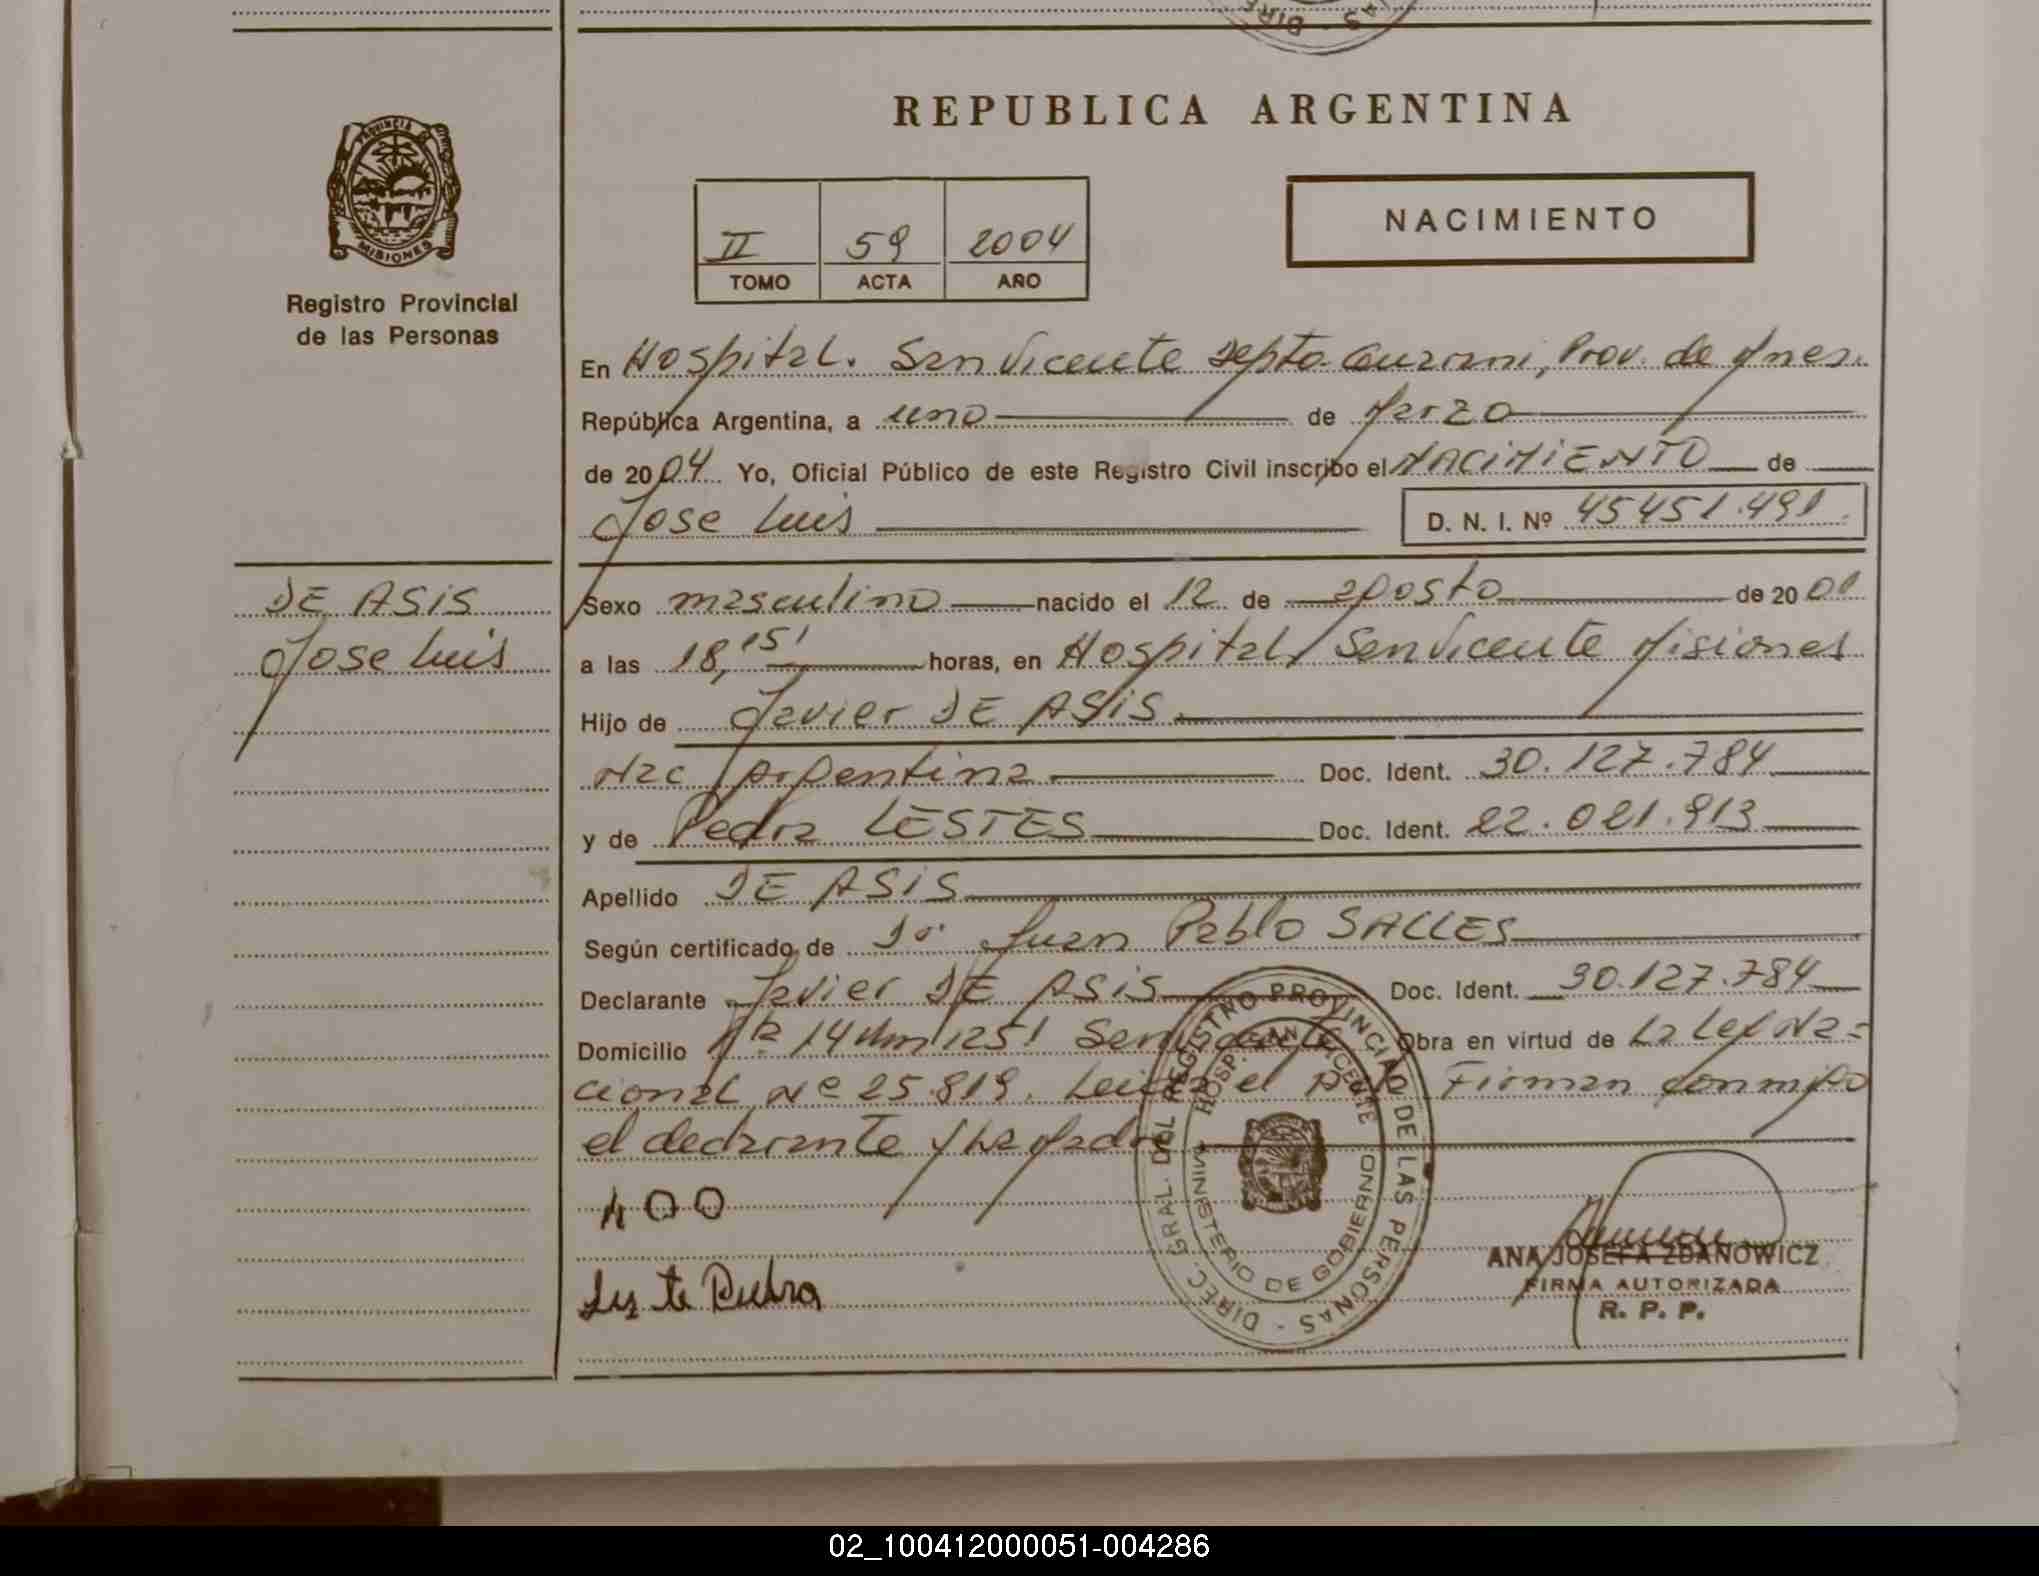 REPUBLICA ARGENTINA
PROVINCIA DE
MISIONES
Registro Provincial
de las Personas
II 59 2004
TOMO ACTA AÑO
NACIMIENTO
En Hospital. San Vicente Depto. Guarani, Prov. de Mnes.
República Argentina, a uno de Marzo
de 2004 Yo, Oficial Público de este Registro Civil inscribo el NACIMIENTO de
Jose Luis D. N. I. Nº 45451.491
DE ASIS
Jose Luis
Sexo masculino nacido el 12 de agosto de 2001
a las 18,15' horas, en Hospital San Vicente Misiones
Hijo de Javier DE ASIS
Nac Argentina Doc. Ident. 30.127.784
y de Pedra LESTES Doc. Ident. 22.021.913
Apellido DE ASIS
Según certificado de Dr. Juan Pablo SALLES
Declarante Javier DE ASIS Doc. Ident. 30.127.784
Domicilio 14 Km 1251 San Vicente Obra en virtud de La Ley Na=
cional Nº 25.819. Leida el Acta Firman conmigo
el declarante y La Madre
DIREC. GRAL. DEL REGISTRO PROVINCIAL DE LAS PERSONAS -
HOSP. SAN VICENTE
MINISTERIO DE GOBIERNO
ANA JOSEFA ZDANOWICZ
FIRMA AUTORIZADA
R. P. P.
02_100412000051-004286